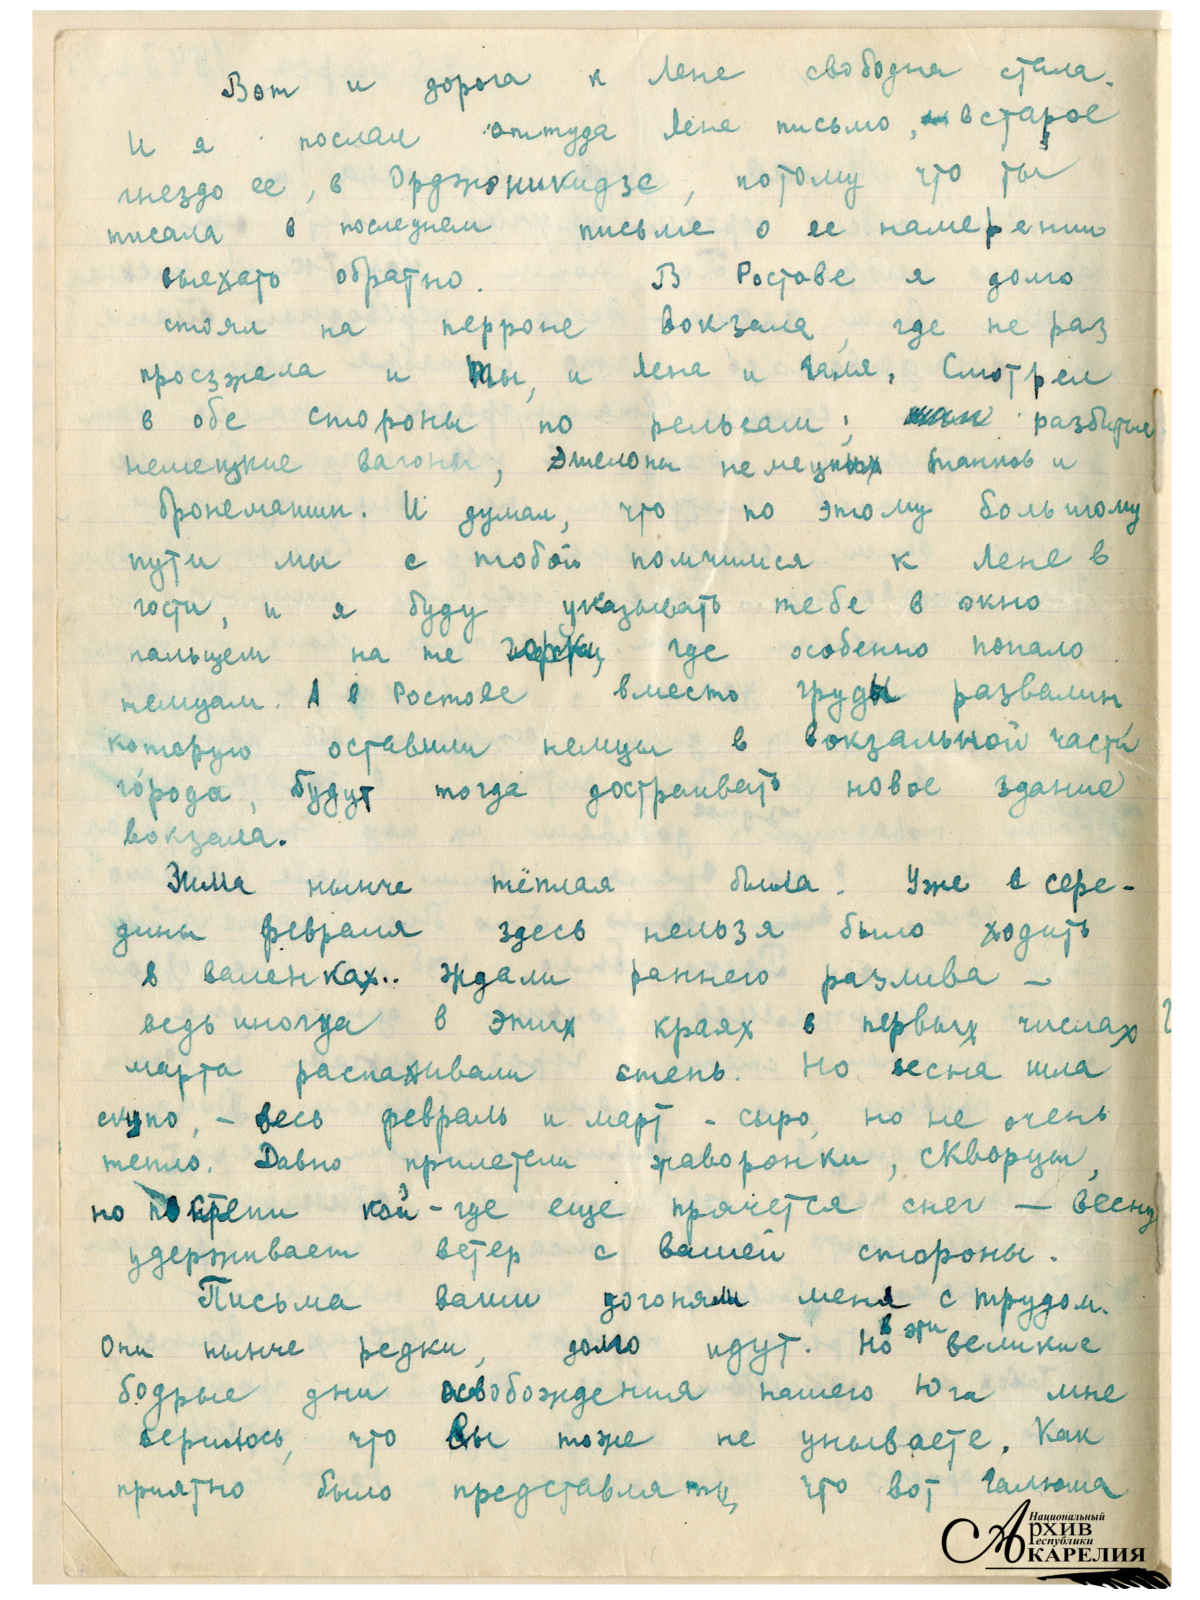 Вот и дорога к Лене свободна стала.
И я послал оттуда Лене письмо, в старое
гнездо ее, в Орджоникидзе, потому что ты
писала в последнем письме о ее намерении
выехать обратно. В Ростове я долго
стоял на перроне вокзала, где не раз
проезжала и ты, и Лена и Галя. Смотрел
в обе стороны по рельсам; разбитые
немецкие вагоны, эшелоны немецких танков и
бронемашин. И думал, что по этому большому
пути мы с тобой помчимся к Лене в
гости, и я буду указывать тебе в окно
пальцем на те где особенно попало
немцам. А в Ростове вместо груды развалин
которую оставили немцы в вокзальной части
города, будут тогда достраивать новое здание
вокзала.
Зима нынче тёплая была. Уже в сере-
дины февраля здесь нельзя было ходить
в валенках.. Ждали раннего разлива –
ведь иногда в этих краях в первых числах
марта распахивали степь. Но весна шла
скупо, – весь февраль и март – сыро, но не очень
тепло. Давно прилетели жаворонки, скворцы,
но по степи кой-где еще прячется снег – весну
удерживает ветер с вашей стороны.
Письма ваши догоняли меня с трудом.
Они нынче редки, долго идут. Но в эти великие
бодрые дни освобождения нашего Юга мне
верилось, что Вы тоже не унываете. Как
приятно было представлять, что вот Галюша
Национальный
Архив
Республики
Карелия